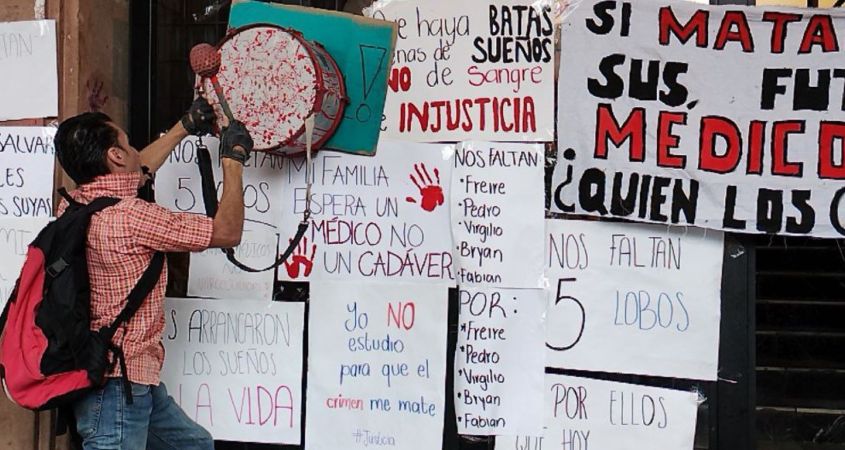 FALTAN
SALVAR
LES
SUYAS
NOS FALTAN
5 LOBOS
S ARRANCARON
LOS SUEÑOS
LA VIDA
¡!
Que haya BATAS
llenas de SUEÑOS
NO de Sangre
E INJUSTICIA
MI FAMILIA
ESPERA UN
MÉDICO NO
UN CADÁVER
Yo NO
estudio
para que el
crimen me mate
#Justicia
NOS FALTAN
• Freire
• Pedro
• Virgilio
• Bryan
• Fabian
POR:
*Freire
*Pedro
*Virgilio
*Bryan
*Fabian
SI MATA
SUS, FUT
MEDICO
¿QUIEN LOS
NOS FALTAN
5 LOBOS
POR ELLOS
QUE HOY